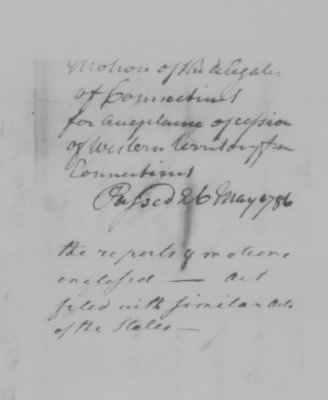 Motion of the delegates
of Connecticut
for acceptance of cession
of Western territory from
Connecticut
Passed 26 May 1786
the reports & motions
enclosed — act
filed with similar acts
of the States —